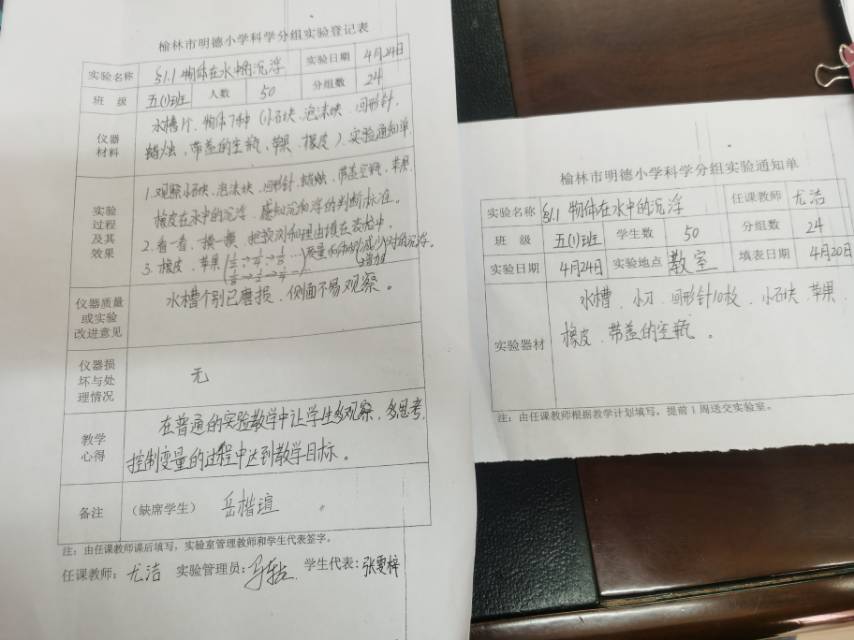 榆林市明德小学科学分组实验登记表
实验名称 §1.1 物体在水中的沉浮 实验日期 4月24日
班 级 五(1)班 人数 50 分组数 24
仪器材料
水槽1个、物体7种(小石块、泡沫块、回形针、
蜡烛、带盖的空瓶、苹果、橡皮)、实验通知单
实验过程及其效果
1.观察小石块、泡沫块、回形针、蜡烛、带盖空瓶、苹果、
橡皮在水中的沉浮,感知沉和浮的判断标准。
2.看一看、摸一摸,把预测和理由填在表格中。
3.橡皮、苹果
仪器质量或实验改进意见
水槽个别已磨损,侧面不易观察。
仪器损坏与处理情况
无
教学心得
在普通的实验教学中让学生多观察,多思考,
控制变量的过程中达到教学目标。
备注 (缺席学生) 岳楷瑄
注:由任课教师课后填写,实验室管理教师和学生代表签字。
任课教师:尤洁 实验管理员: 学生代表:张雯梓
榆林市明德小学科学分组实验通知单
实验名称 §1.1 物体在水中的沉浮 任课教师 尤洁
班 级 五(1)班 学生数 50 分组数 24
实验日期 4月24日 实验地点 教室 填表日期 4月20日
实验器材
水槽、小刀、回形针10枚、小石块、苹果、
橡皮、带盖的空瓶。
注:由任课教师根据教学计划填写,提前1周送交实验室。